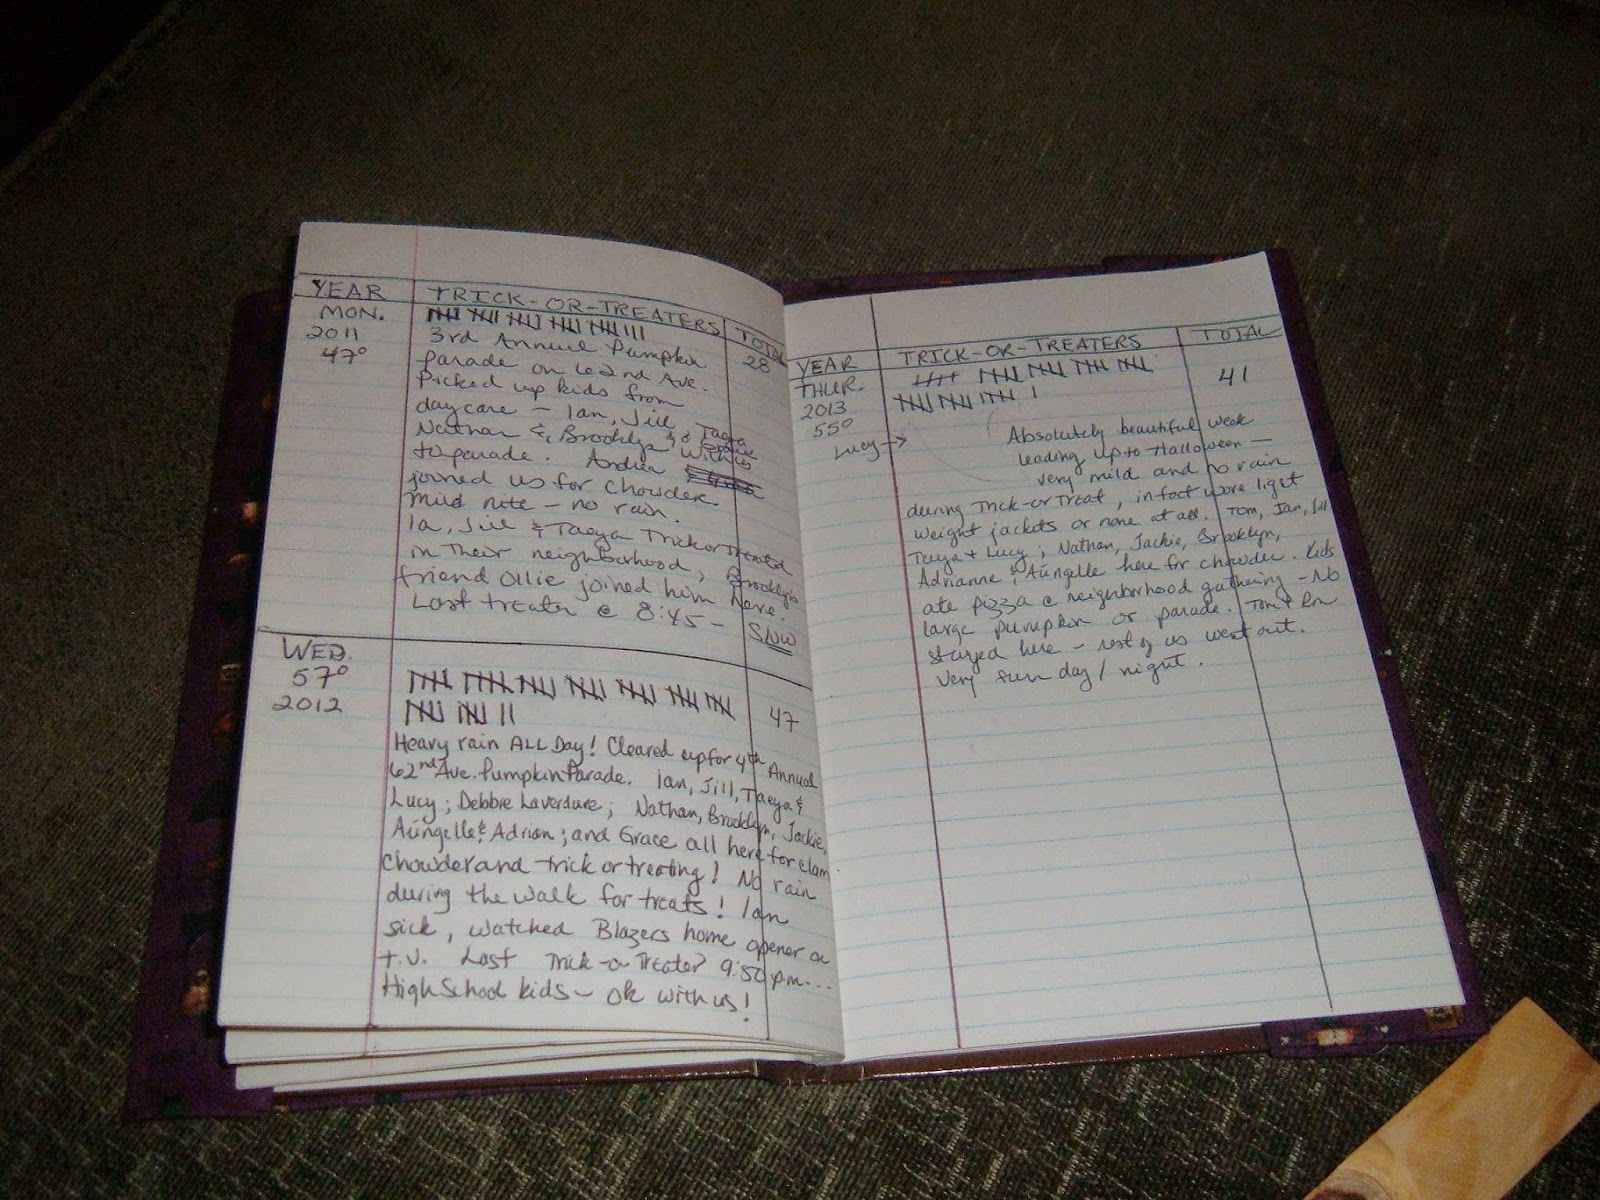 YEAR TRICK-OR-TREATERS TOTAL
MON. 28
2011 3rd Annual Pumpkin
47° parade on 62nd Ave.
Picked up kids from
daycare - Ian, Jill, Taeya
Nathan &, Brooklyn & Grace with us
to parade. Andrea
joined us for chowder.
Mild nite - no rain.
Ia, Jill & Taeya Trick or Treated
in their neighborhood, Brooklyn's
friend Ollie joined him here.
Last treater @ 8:45 - SNW
WED.
57°
2012 47
Heavy rain ALL Day! Cleared up for 4th Annual
62nd Ave. Pumpkin Parade. Ian, Jill, Taeya &
Lucy; Debbie Laverdure; Nathan, Brooklyn, Jackie,
Aüngelle & Adrian; and Grace all here for clam
chowder and trick or treating! No rain
during the walk for treats! Ian
sick, watched Blazers home opener on
t.v. Last Trick-or Treater 9:50 pm...
High School kids - ok with us!
YEAR TRICK-OR-TREATERS TOTAL
THUR. 41
2013
55° Absolutely beautiful week
Lucy → leading up to Halloween -
very mild and no rain
during Trick-or Treat, in fact wore light
weight jackets or none at all. Tom, Ian, Jill
Taeya + Lucy; Nathan, Jackie, Brooklyn,
Adrianne & Aüngelle here for chowder. Kids
ate pizza @ neighborhood gathering - No
large pumpkin or parade. Tom + Ron
stayed here - rest of us went out.
Very fun day / night.